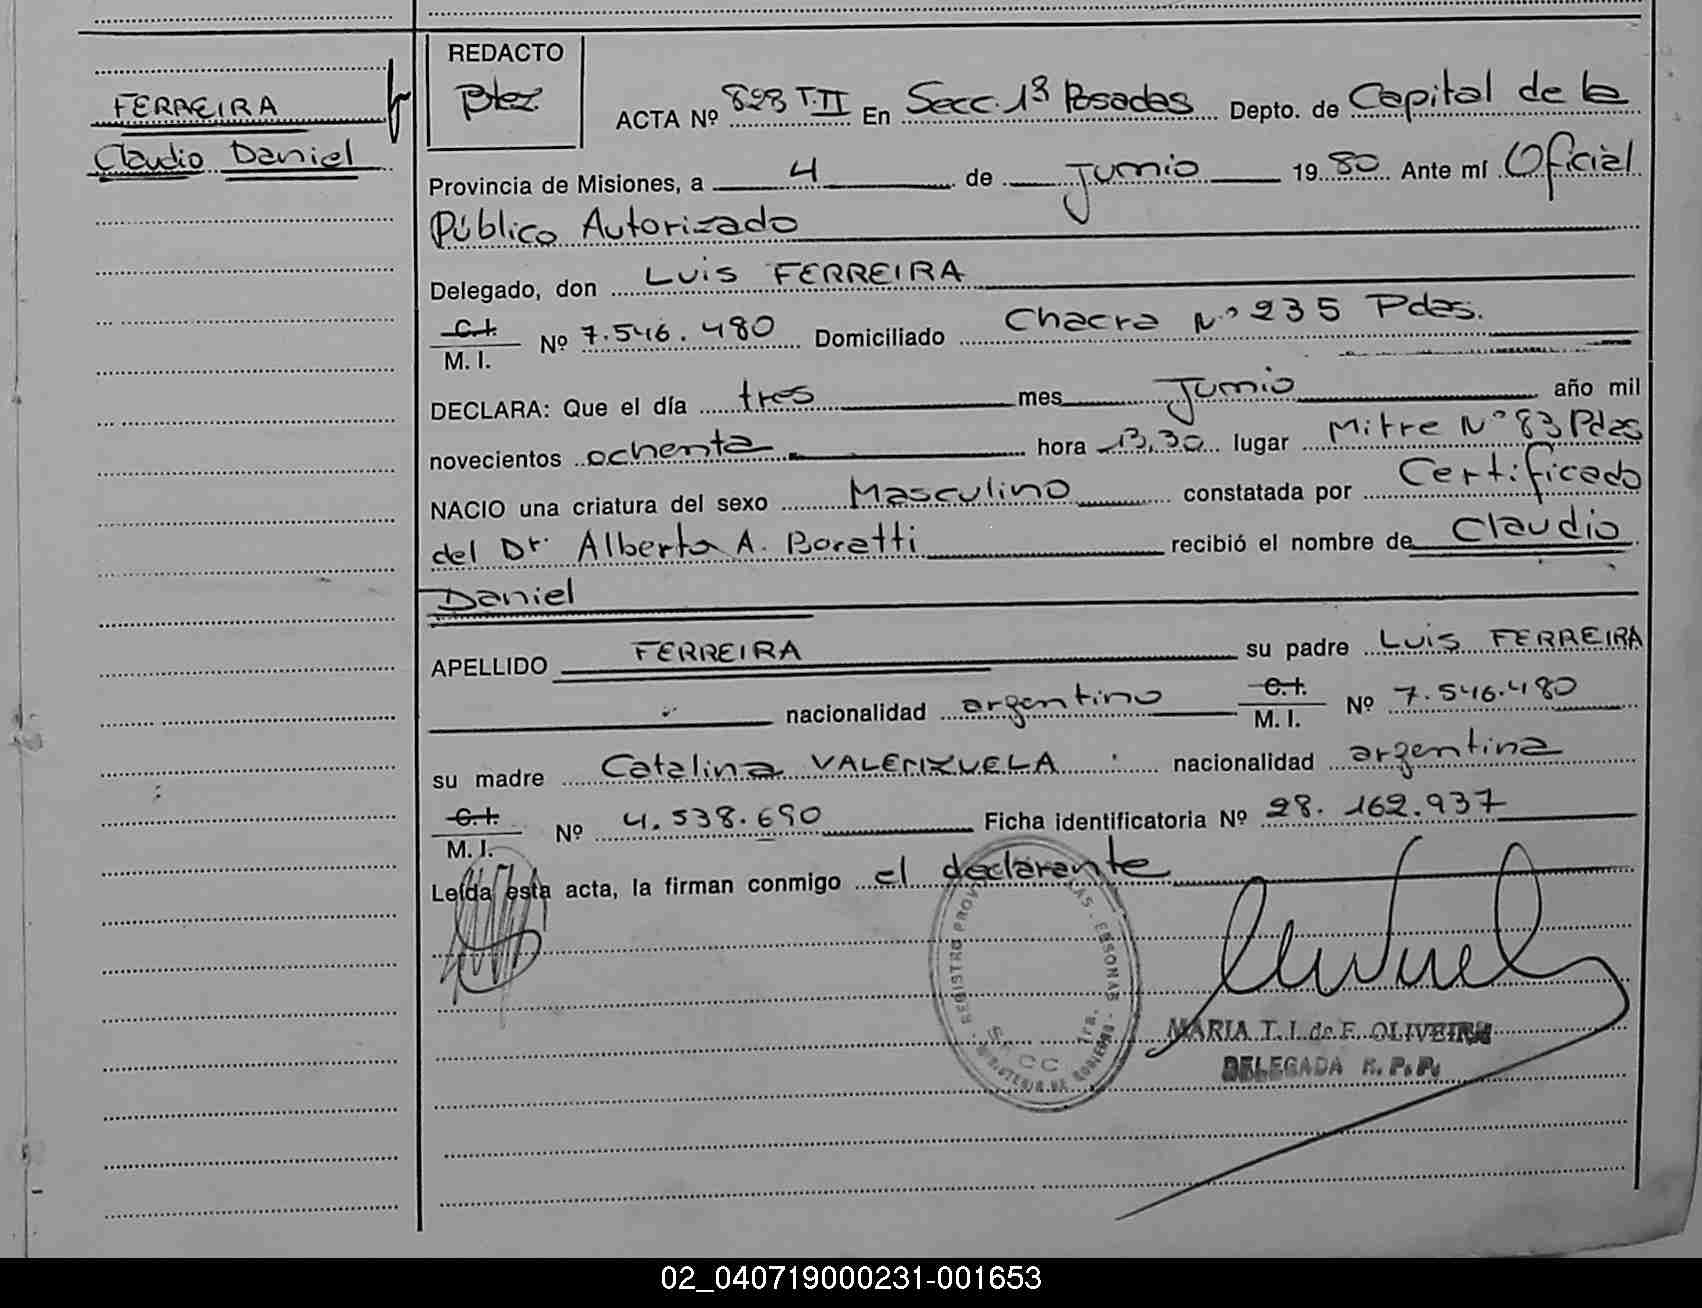 FERREIRA
Claudio Daniel
REDACTO
ACTA Nº 828 T.II En Secc. 1ª Posadas Depto. de Capital de la
Provincia de Misiones, a 4 de Junio 1980 Ante mí Oficial
Público Autorizado
Delegado, don Luis FERREIRA
C.I.
M. I. Nº 7.546.480 Domiciliado Chacra Nº 235 Pdas.
DECLARA: Que el día tres mes Junio año mil
novecientos ochenta hora 13,30 lugar Mitre Nº 83 Pdas
NACIO una criatura del sexo Masculino constatada por Certificado
del Dr. Alberto A. Boratti recibió el nombre de Claudio
Daniel
APELLIDO FERREIRA su padre Luis FERREIRA
nacionalidad argentino C.I. M. I. Nº 7.546.480
su madre Catalina VALENZUELA nacionalidad argentina
C.I.
M. I. Nº 4.538.690 Ficha identificatoria Nº 28.162.937
Leída esta acta, la firman conmigo el declarante
REGISTRO PROV
SECC 1ra.
MARIA T. I. de F. OLIVEIRA
DELEGADA R. P. P.
02_040719000231-001653